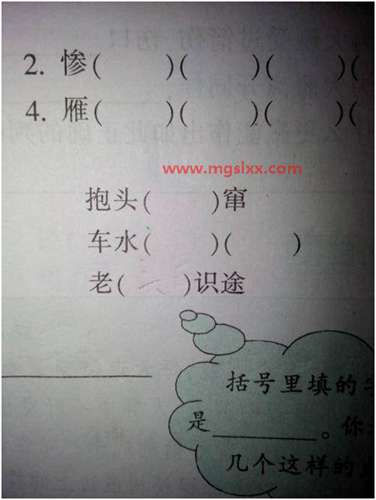 2. 惨(　　)(　　)(　　)(
4. 雁(　　)(　　)(　　)(
www.mgslxx.com
抱头(　　)窜
车水(　　)(　　)
老(　　)识途
括号里填的
是______。你
几个这样的